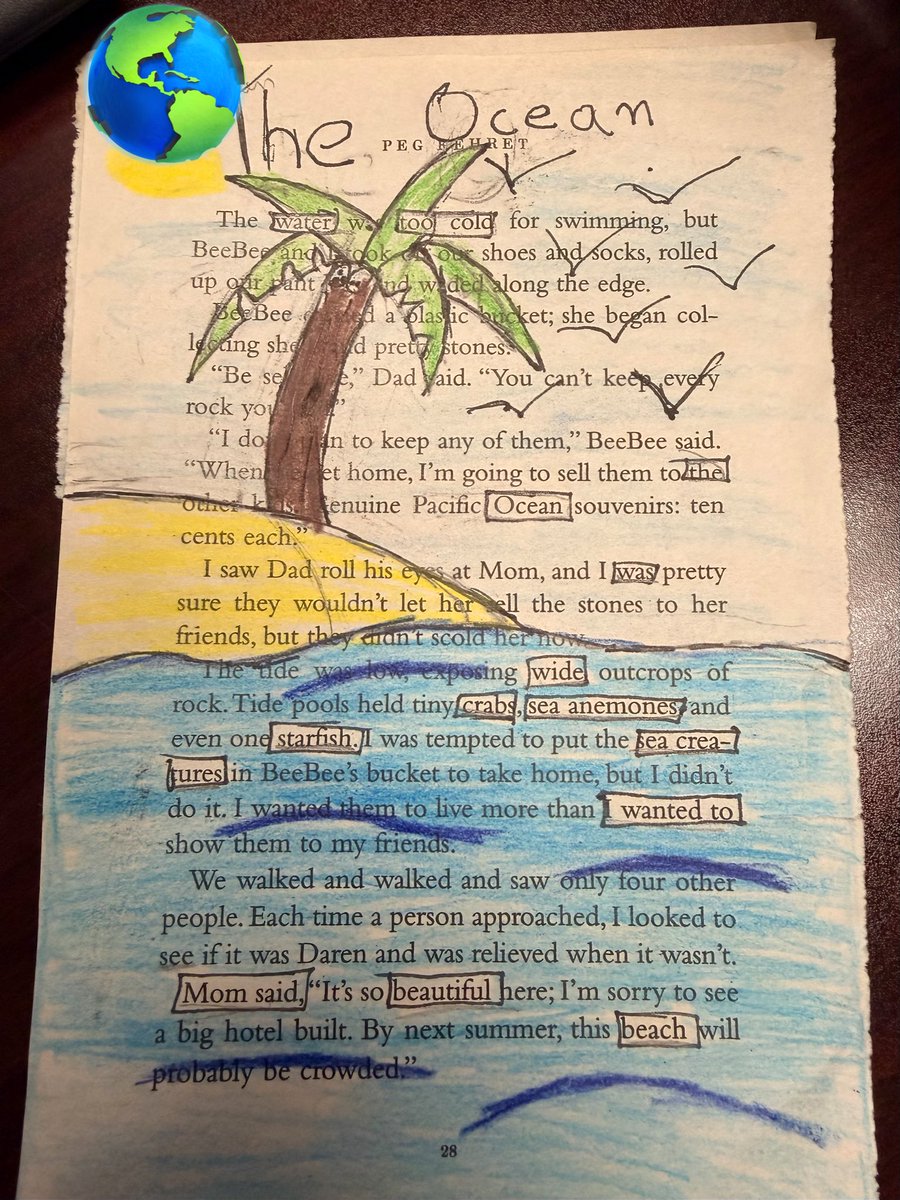 The Ocean
PEG KEHRET
The water was too cold for swimming, but
BeeBee and I took off our shoes and socks, rolled
up our pant and waded along the edge.
BeeBee a plastic bucket; she began col–
lecting and pretty stones.
“Be Dad said. “You can’t keep every
rock you
“I to keep any of them,” BeeBee said.
“When home, I’m going to sell them to the
other Genuine Pacific Ocean souvenirs: ten
cents each.”
I saw Dad roll his eyes at Mom, and I was pretty
sure they wouldn’t let her sell the stones to her
friends, but they didn’t scold her now.
The tide was low, exposing wide outcrops of
rock. Tide pools held tiny crabs, sea anemones, and
even one starfish. I was tempted to put the sea crea–
tures in BeeBee’s bucket to take home, but I didn’t
do it. I wanted them to live more than I wanted to
show them to my friends.
We walked and walked and saw only four other
people. Each time a person approached, I looked to
see if it was Daren and was relieved when it wasn’t.
Mom said, “It’s so beautiful here; I’m sorry to see
a big hotel built. By next summer, this beach will
probably be crowded.”
28